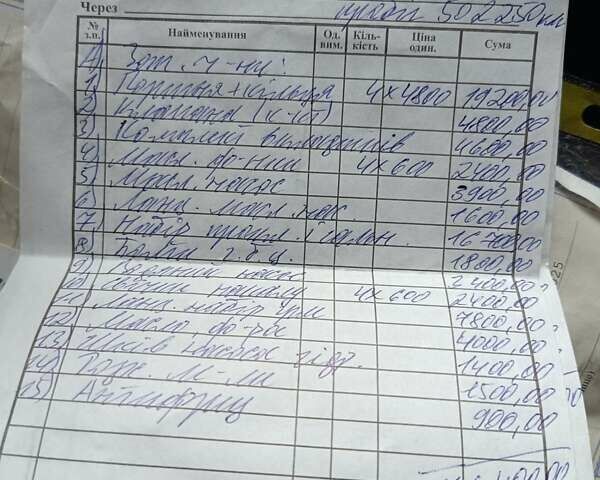 Через пробіг 502250 км
№ з.п. Найменування Од. вим. Кіль-кість Ціна один. Сума
А) Зап. ч-ни:
1) Поршня+кільця 4×4800 19200,00
2) Клапана (к-кт) 4800,00
3) Комплект вкладишів 4600,00
4) Масл. 4×600 2400,00
5) Масл. насос 3900,00
6) Ланц. масл. нас. 1600,00
7) Набір прокл. і сальн. 16700,00
8) Болти г.б.ц. 1800,00
9) Водяний насос 2400,00
10) Свічки накалу 4×600 2400,00
11) Ланц. набір грм 7800,00
12) Масло 4000,00
13) Шків насоса гідр. 1400,00
14) м-ли 1500,00
15) Антифриз 900,00